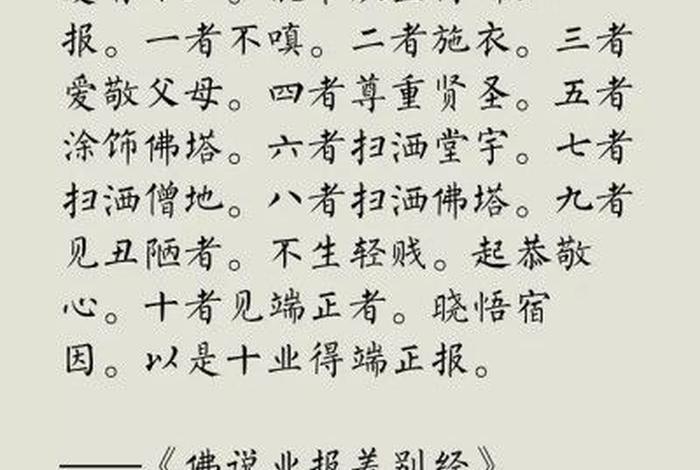 报。一者不嗔。二者施衣。三者
爱敬父母。四者尊重贤圣。五者
涂饰佛塔。六者扫洒堂宇。七者
扫洒僧地。八者扫洒佛塔。九者
见丑陋者。不生轻贱。起恭敬
心。十者见端正者。晓悟宿
因。以是十业得端正报。
——《佛说业报差别经》